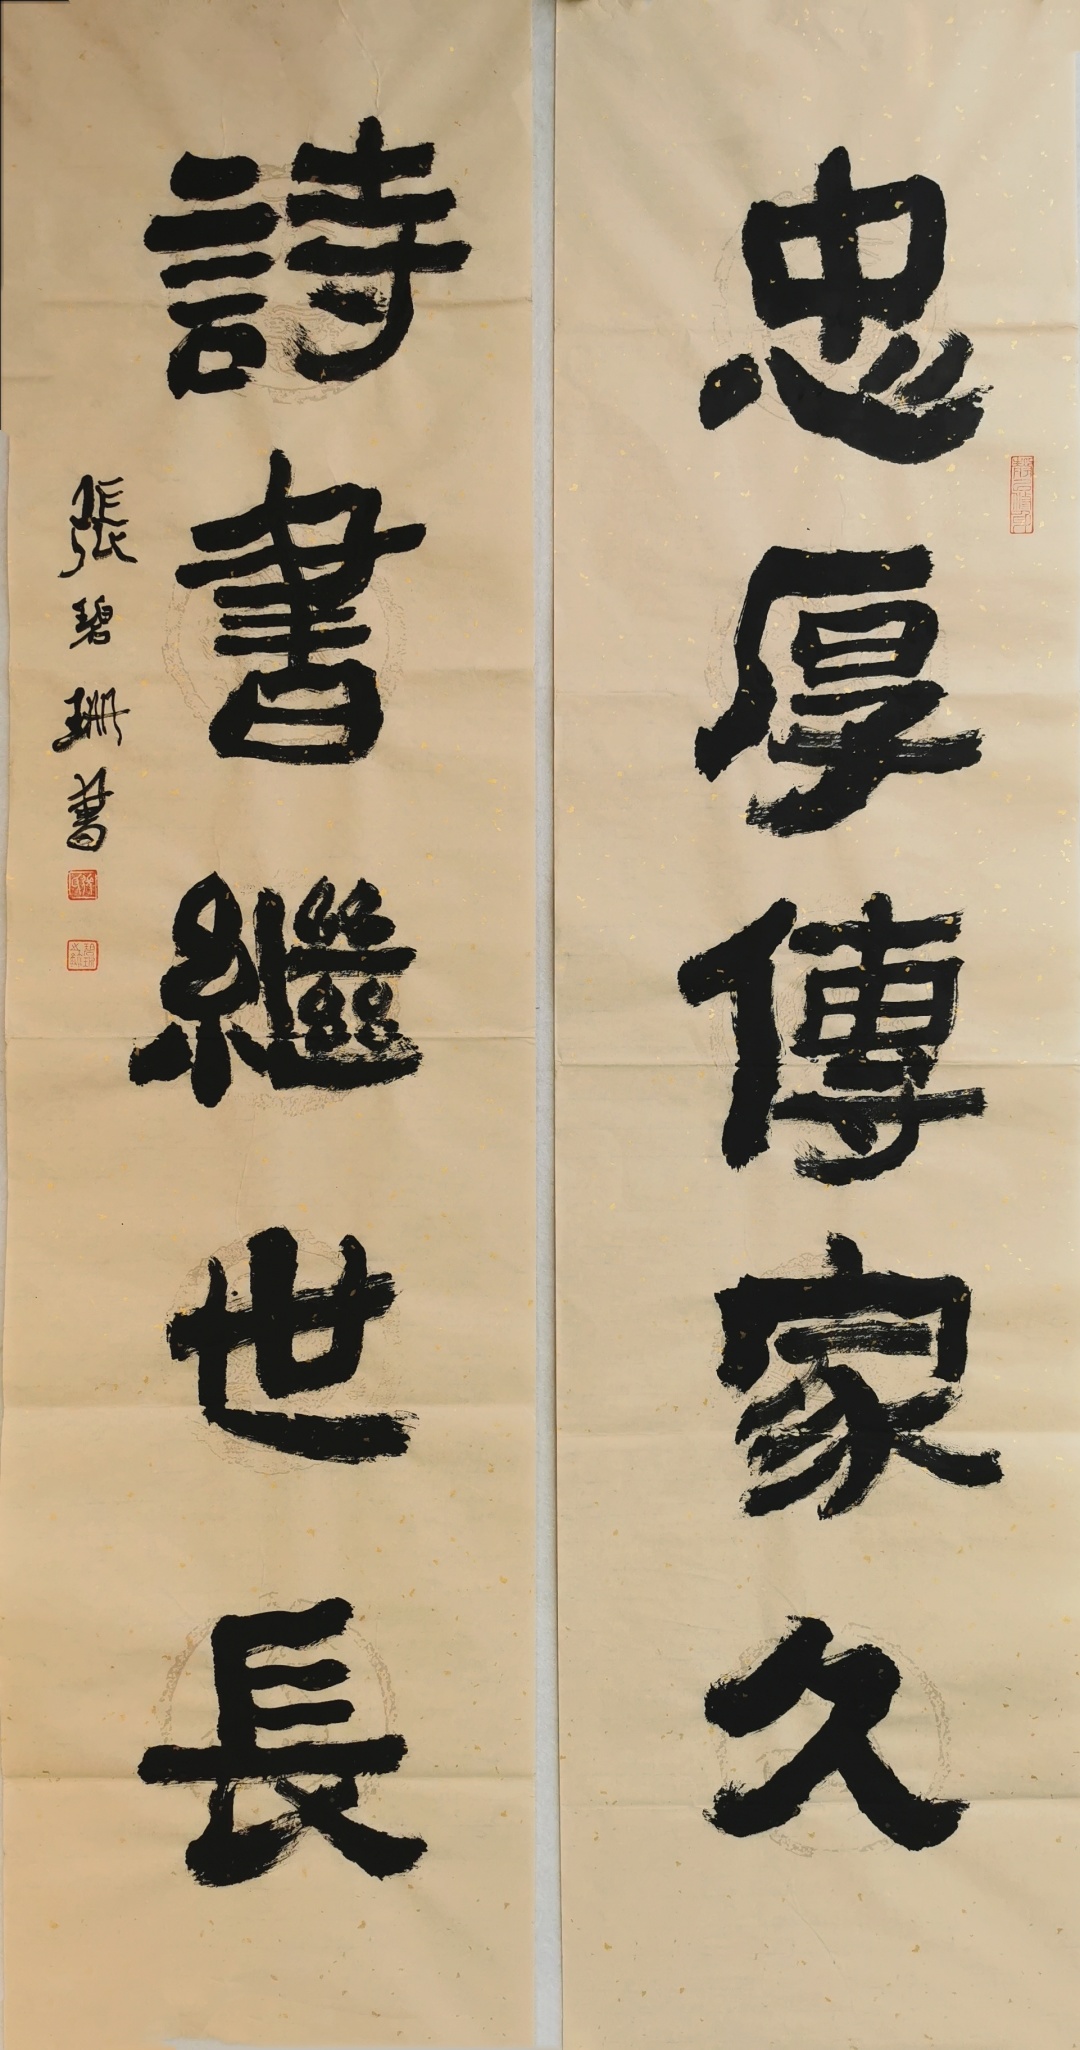 忠厚傳家久
詩書繼世長
張碧珊書